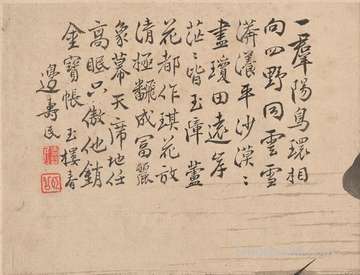 一羣陽鳥環相
向四野同雲雪
漭瀁平沙漠〻
盡瓊田遠岸
茫〻皆玉嶂蘆
花都作琪花放
清極飜成富麗
象幕天席地任
高眠只傲他銷
金寶帳玉樓春
邊壽民